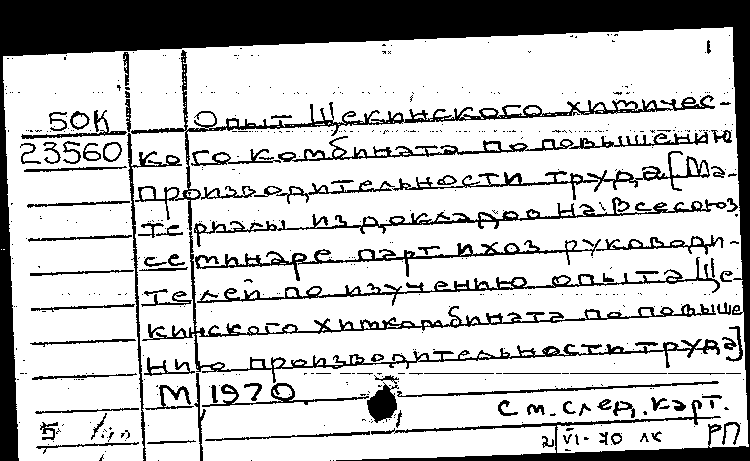 1
50К Опыт Щекинского химичес-
23560 кого комбината по повышению
производительности труда [Ма-
териалы из докладов на Всесоюз
семинаре парт. и хоз. руководи-
телей по изучению опыта Ще
кинского химкомбината по повыше
нию производительности труда]
М 1970.
См. след. карт.
5
2/VI-70 ЛК РП